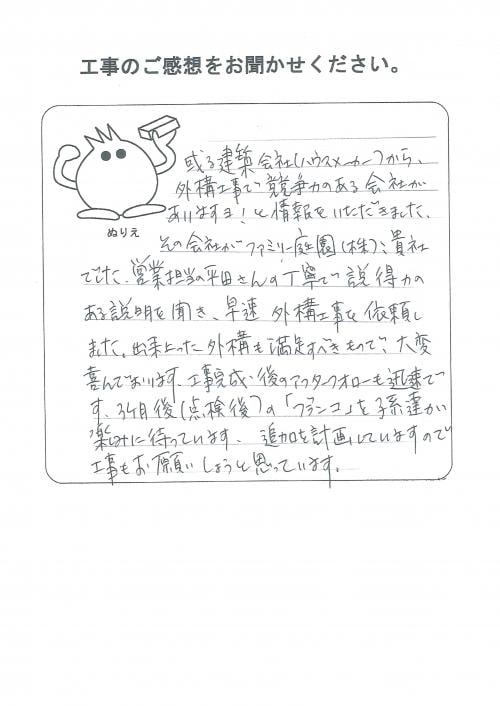 工事のご感想をお聞かせください。
ぬりえ
或る建築会社(ハウスメーカー)から、
外構工事で競争力のある会社が
ありますヨ!と情報をいただきました。
その会社がファミリー庭園(株)、貴社
でした。営業担当の平田さんの丁寧で説得力の
ある説明を聞き、早速外構工事を依頼し
ました。出来上った外構も満足すべきもので、大変
喜んでおります。工事完成後のアフターフォローも迅速で
す。3ヶ月後(点検後)の「ブランコ」を子孫達が
楽しみに待っています。追加を計画していますので
工事もお願いしようと思っています。